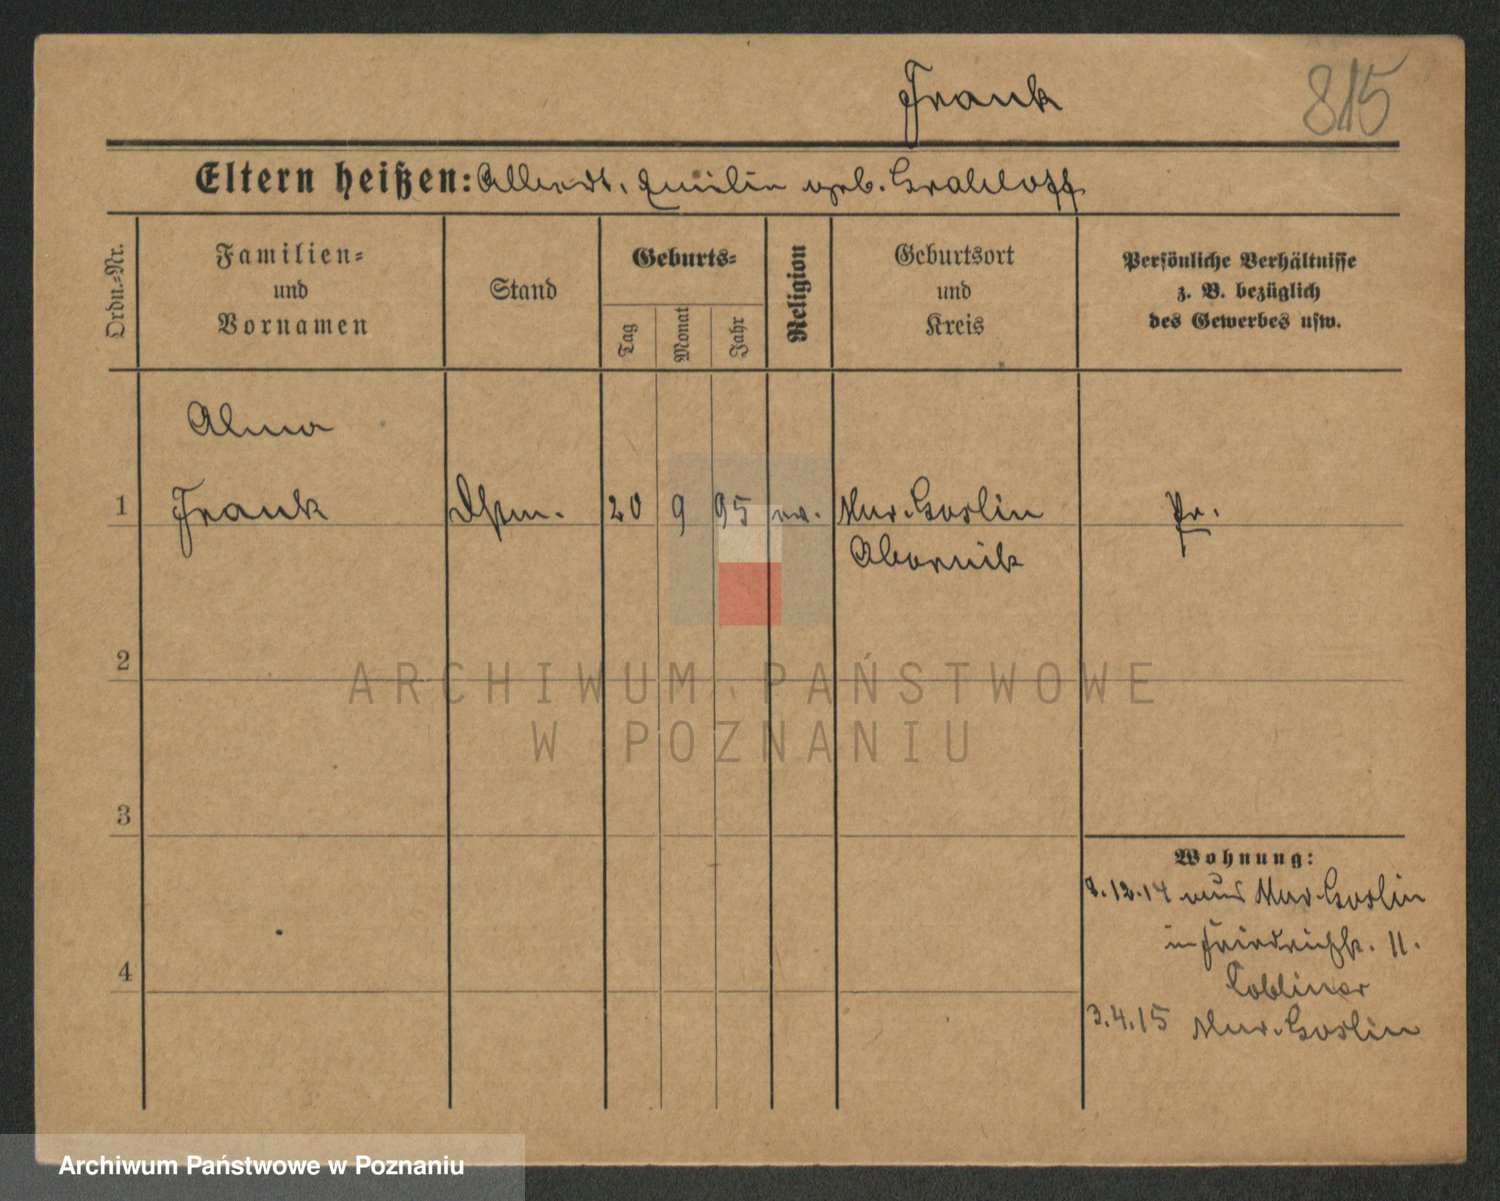 Frank
815
Eltern heißen: Albert, Emilie geb. Grabloff
Ordn.-Nr.
Familien-
und
Vornamen
Stand
Geburts-
Tag
Monat
Jahr
Religion
Geburtsort
und
Kreis
Persönliche Verhältnisse
z. B. bezüglich
des Gewerbes usw.
Alma
1 Frank Dstm. 20 9 95 ev. Mur. Goslin Pr.
Obornik
2
3
4
Wohnung:
8.12.14 aus Mur. Goslin
in Friedrichstr. 11.
3.4.15 Mur. Goslin
ARCHIWUM PAŃSTWOWE
W POZNANIU
Archiwum Państwowe w Poznaniu